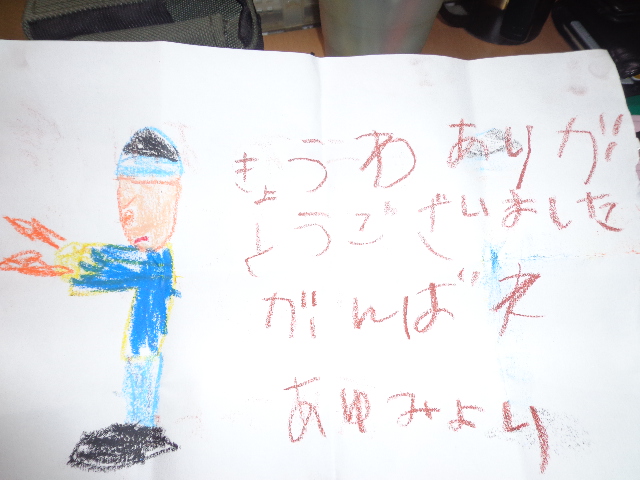 きょうわありが
とうございました
がんばえ
あゆみより